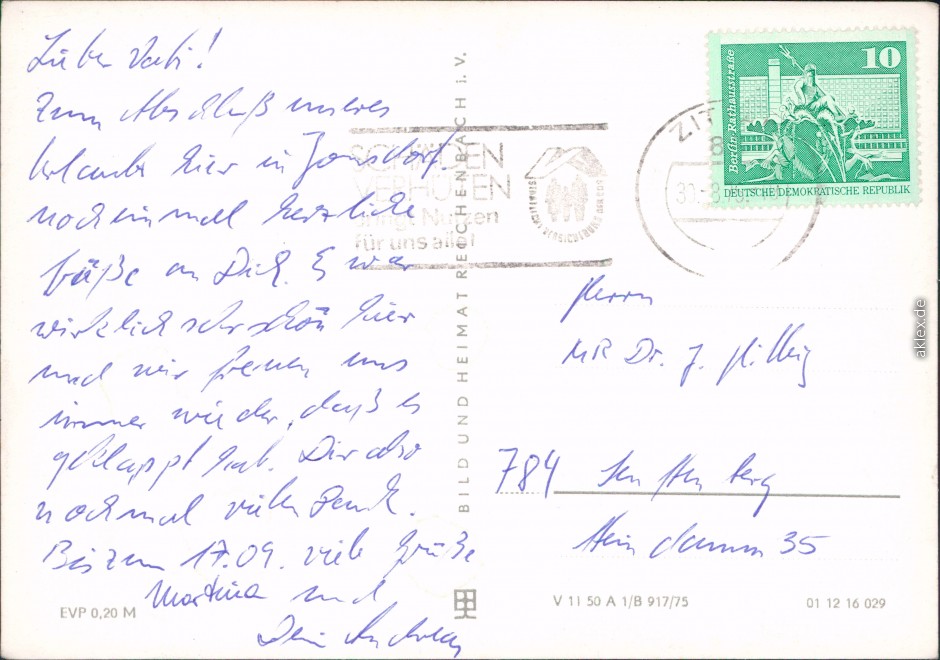 Lieber Vati!
Zum Abschluß unseres
Urlaubs hier in Jonsdorf
noch einmal herzliche
Grüße an Dich. Es war
wirklich sehr schön hier
und wir freuen uns
immer wieder, daß es
geklappt hat. Dir also
nochmal vielen Dank.
Bis zum 17.09. viele Grüße
Martina und
Dein Andreas
EVP 0,20 M
BILD UND HEIMAT REICHENBACH i. V.
SCHÄDEN
VERHÜTEN
bringt Nutzen
für uns alle!
STAATLICHE VERSICHERUNG DER DDR
ZIT
8
30.-8.
10
Berlin · Rathausstraße
DEUTSCHE DEMOKRATISCHE REPUBLIK
Herrn
MR Dr. J.
784 Senftenberg
Steindamm 35
V 11 50 A 1/B 917/75
01 12 16 029
aklex.de